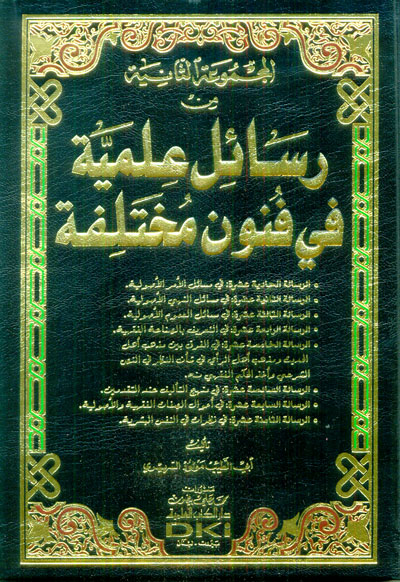 المجموعة الثانية
من
رسائل علمية
في فنون مختلفة
الرسالة الحادية عشرة: في مسائل الأمر الأصولية.
الرسالة الثانية عشرة: في مسائل النهي الأصولية.
الرسالة الثالثة عشرة: في مسائل العموم الأصولية.
الرسالة الرابعة عشرة: في التعريف بالصناعة الفقهية.
الرسالة الخامسة عشرة: في الفرق بين مذهب أهل
الحديث ومذهب أهل الرأي في شأن النظر في المتون
الشرعي وأخذ الحكم الفقهي منه.
الرسالة السادسة عشرة: في منهج التأليف عند المتقدمين.
الرسالة السابعة عشرة: في أحوال الصفات الفقهية والأصولية.
الرسالة الثامنة عشرة: في نظرات في النفس البشرية.
تأليف
منشورات
محمد علي بيضون
دار الكتب العلمية
DKI
بيروت - لبنان